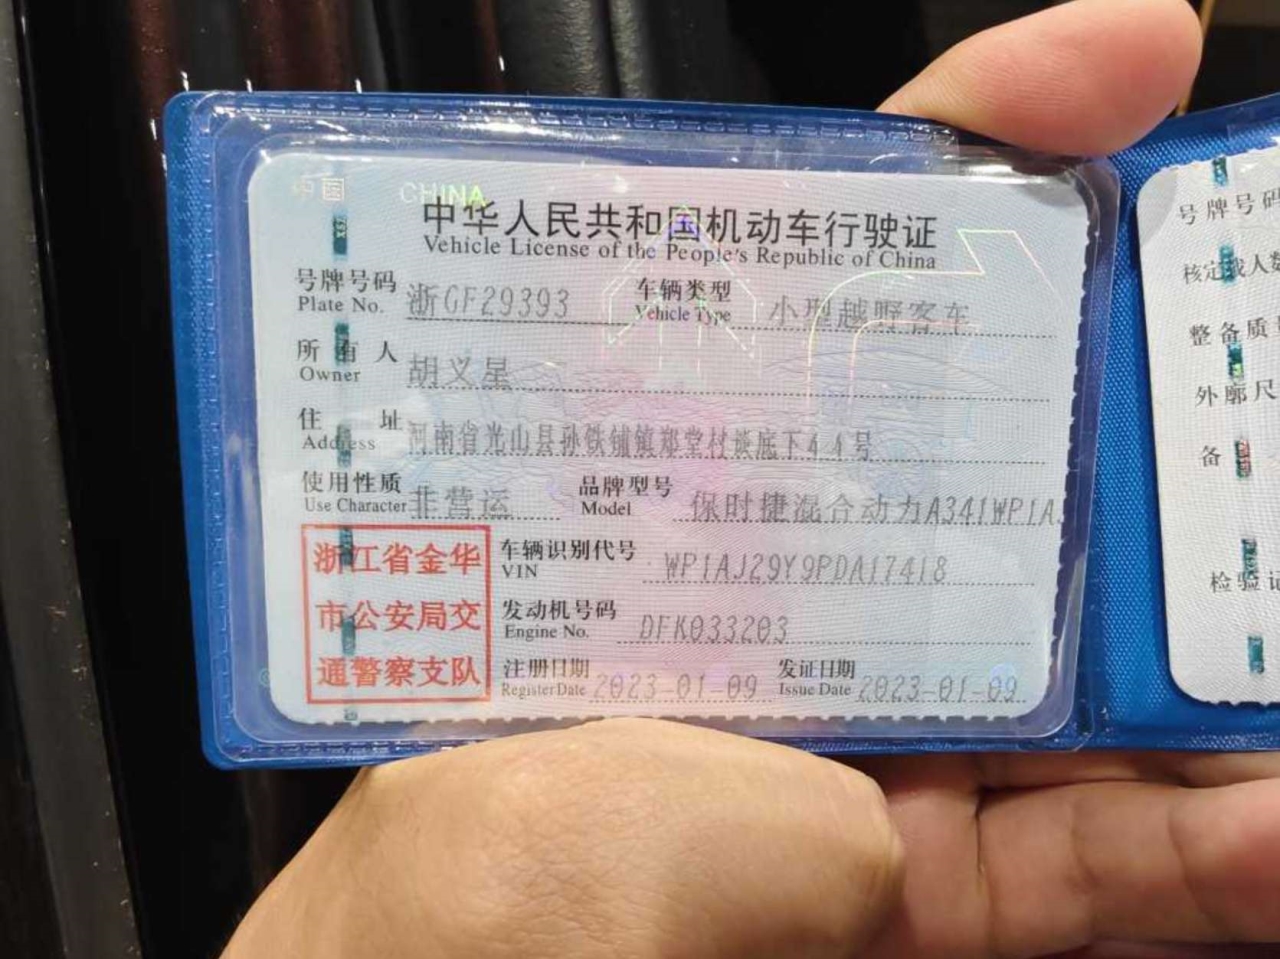 中国 CHINA
中华人民共和国机动车行驶证
Vehicle License of the People's Republic of China
号牌号码 浙GF29393 车辆类型 小型越野客车
Plate No. Vehicle Type
所有人 胡义星
Owner
住址 河南省光山县孙铁铺镇郑堂村谈底下44号
Address
使用性质 非营运 品牌型号 保时捷混合动力A341WP1A
Use Character Model
浙江省金华
市公安局交
通警察支队
车辆识别代号 WP1AJ29Y9PDA17418
VIN
发动机号码 DFK033203
Engine No.
注册日期 2023-01-09 发证日期 2023-01-09
Register Date Issue Date
号牌号码
核定载人数
整备质量
外廓尺
备
检验记